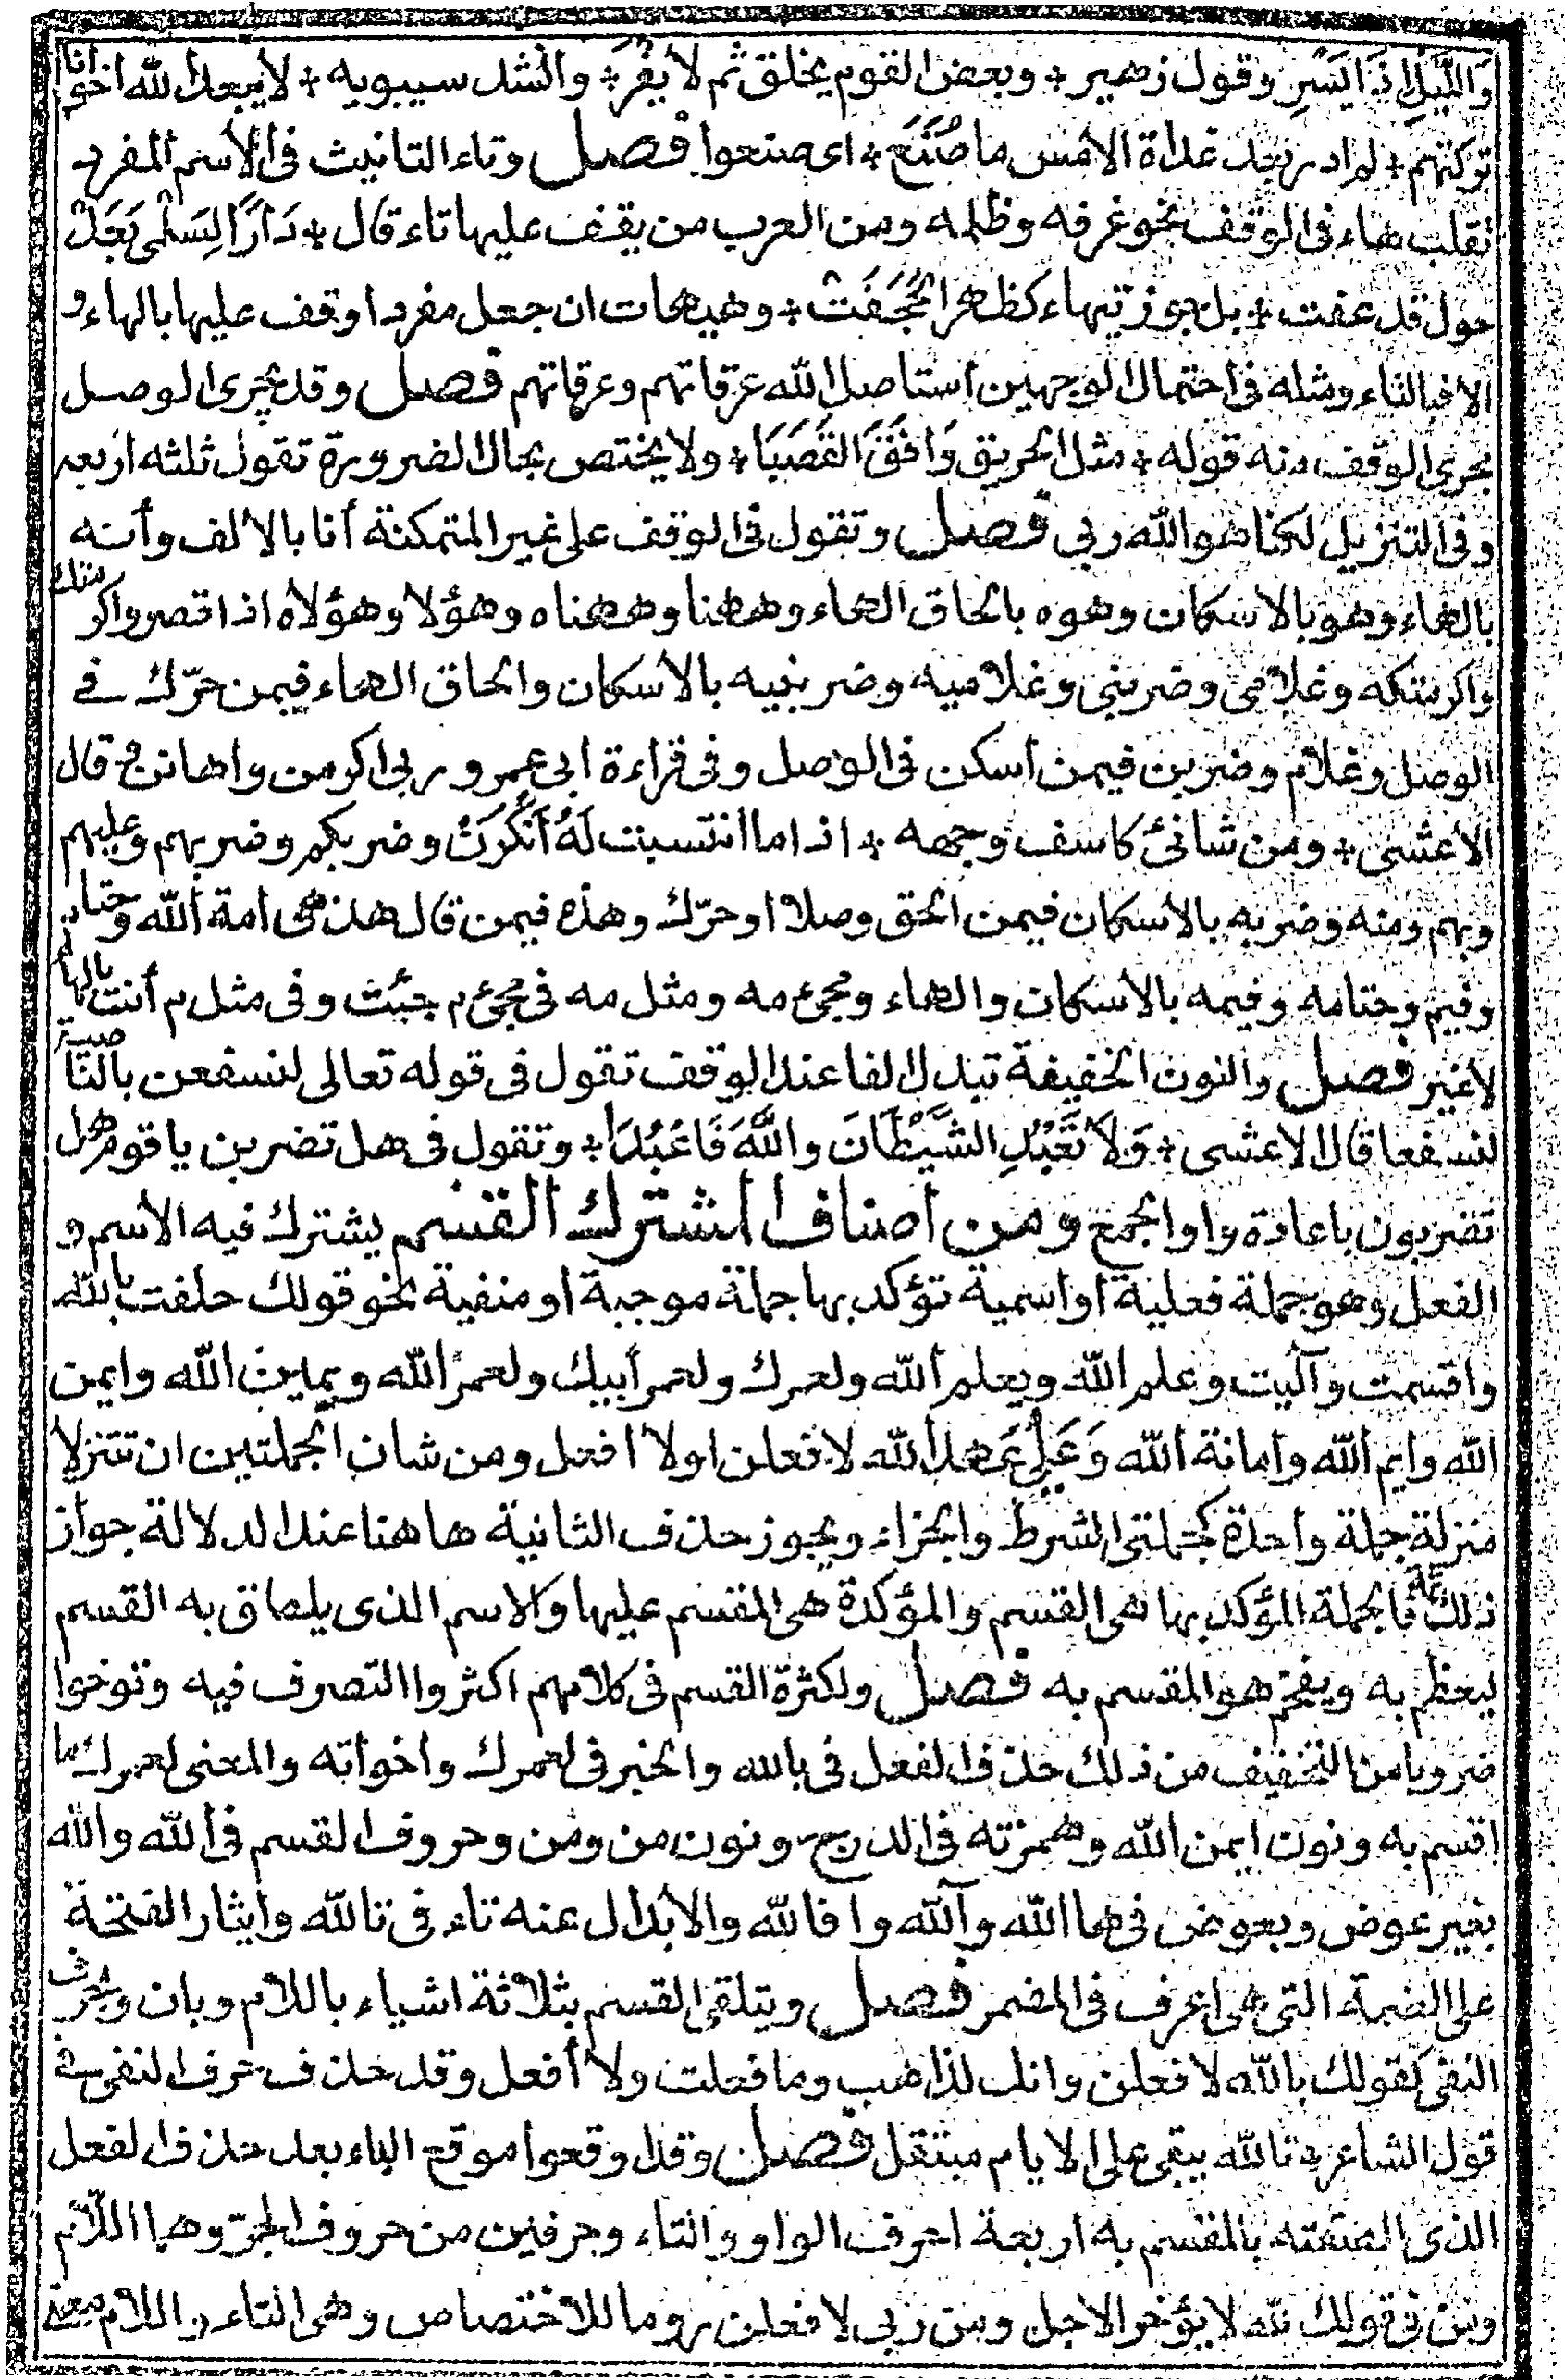 وَاللَّيْلِ إِذَا يَسْرِ وقول زهير ؛ وبعض القوم يخلق ثم لا يفرْ ؛ وانشد سيبويه ؛ لا يبعد الله اخوانا
تركتهم ؛ لم ادر بعد غداة الامس ما صُنَعْ ؛ اى صنعوا فصل وتاء التانيث فى الاسم المفرد
تقلب هاء فى الوقف نحو غرفه وظلمه ومن العرب من يقف عليها تاء قال ؛ دَارًا لِسَلْمى بَعَدْ
حول قد عفت ؛ بل جوز تيهاء كظهر الحُجَفَتْ ؛ وهيهات ان جعل مفردا وقف عليها بالهاء و
الا فبالتاء ومثله فى احتمال الوجهين استاصل الله عرقاتهم وعرقاتهم فصل وقد يجرى الوصل
مجرى الوقف منه قوله ؛ مثل الحريق وَافَقَ القَصَبَا ؛ ولا يختص بحال الضرورة تقول ثلثه اربعه
وفى التنزيل لكنا هو الله ربى فصل وتقول فى الوقف على غير المتمكنة أنا بالالف وأنه
بالهاء وهو بالاسكان وهوه بالحاق الهاء وههنا وههناه وهؤلا وهؤلاه اذا قصر واكرمتك
واكرمتكه وغلامى وضربنى وغلاميه وضربنيه بالاسكان والحاق الهاء فيمن حرّك فى
الوصل وغلام وضربن فيمن أسكن فى الوصل وفى قراءة ابى عمرو ربى اكرمن واهانن قال
الاعشى ؛ ومن شانئ كاسف وجهه ؛ اذا ما انتسبت لَهُ أَنْكَرَنْ وضربكم وضربهم وعليهم
وبهم ومنه وضربه بالاسكان فيمن الحق وصلا او حرّك وهذه فيمن قال هذهى امة الله وحتام
وفيم وحتامه وفيمه بالاسكان والهاء ومجئ مه ومثل مه فى مجئ م جئت وفى مثل م أنت بالهاء
لا غير فصل والنون الخفيفة تبدل الفا عند الوقف تقول فى قوله تعالى لنسفعن بالناصية
لنسفعا قال الاعشى ؛ وَلَا تَعْبُدِ الشَّيْطَانَ وَاللَّهَ فَاعْبُدَا ؛ وتقول فى هل تضربن يا قوم هل
تضربون باعادة واو الجمع ومن اصناف المشترك القسم يشترك فيه الاسم و
الفعل وهو جملة فعلية أو اسمية تؤكد بها جملة موجبة او منفية نحو قولك حلفت بالله
واقسمت وآليت وعلم الله ويعلم الله ولعمرك ولعمر أبيك ولعمر الله ويمين الله وايمن
الله وايم الله وامانة الله وَعَلَىَّ عَهد الله لا فعلن او لا افعل ومن شان الجملتين ان تتنزلا
منزلة جملة واحدة كجملتى الشرط والجزاء ويجوز حذف الثانية ها هنا عند الدلالة جواز
ذلك ثمة فالجملة المؤكد بها هى القسم والمؤكدة هى المقسم عليها والاسم الذى يلصاق به القسم
ليعظم به ويفخم هو المقسم به فصل ولكثرة القسم فى كلامهم اكثروا التصرف فيه وتوخوا
ضروبا من التخفيف من ذلك حذف الفعل فى بالله والخبر فى لعمرك واخواته والمعنى لعمرك ما
اقسم به ونون ايمن الله وهمزته فى الدرج ونون من ومن وحروف القسم فى الله والله
بغير عوض وبعوض فى ها الله وآلله وا فالله والابدال عنه تاء فى تالله وايثار الفتحة
على الضمة التى هى اعرف فى المضمر فصل ويتلقى القسم بثلاثة اشياء باللام وبان وبحرف
النفى كقولك بالله لا فعلن وانك لذاهب وما فعلت ولا أفعل وقد حذف حرف النفى فى
قول الشاعر ؛ تالله يبقى على الايام مبتقل فصل وقد اوقعوا موقع الباء بعد حذف الفعل
الذى الصقته بالمقسم به اربعة احرف الواو والتاء وحرفين من حروف الجرّ وهما اللام
ومن فى قولك لله لا يؤخر الاجل ومن ربى لا فعلن روما للاختصاص وهى التاء واللام معنى